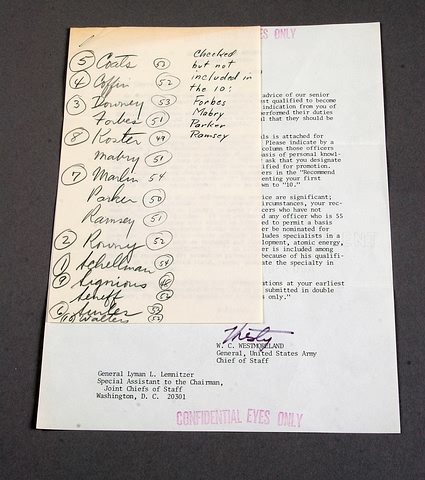 S ONLY
⑤ Coats 53
④ Coffin 52
③ Downey 53
Forbes 51
⑧ Koster 49
Mabry 51
⑦ Marlin 54
Parker 50
Ramsey 51
② Rowny 52
① Schellman 54
⑨ Seignious
Seneff 52
53
⑩ Walters 52
Checked
but not
included in
the 10:
Forbes
Mabry
Parker
Ramsey
advice of our senior
st qualified to become
indication from you of
performed their duties
d that they should be
ls is attached for
Please indicate by a
column those officers
asis of personal knowl-
ask that you designate
ified for promotion.
ers in the "Recommend
enting your first
wn to "10."
ce are significant;
rcumstances, your rec-
cers who have not
d any officer who is 55
d to permit a basis
er be nominated for
cludes specialists in a
lopment, atomic energy,
er is included among
because of his qualifi-
ate the specialty in
ations at your earliest
submitted in double
s only."
Westy
W. C. WESTMORELAND
General, United States Army
Chief of Staff
General Lyman L. Lemnitzer
Special Assistant to the Chairman,
Joint Chiefs of Staff
Washington, D. C. 20301
CONFIDENTIAL EYES ONLY